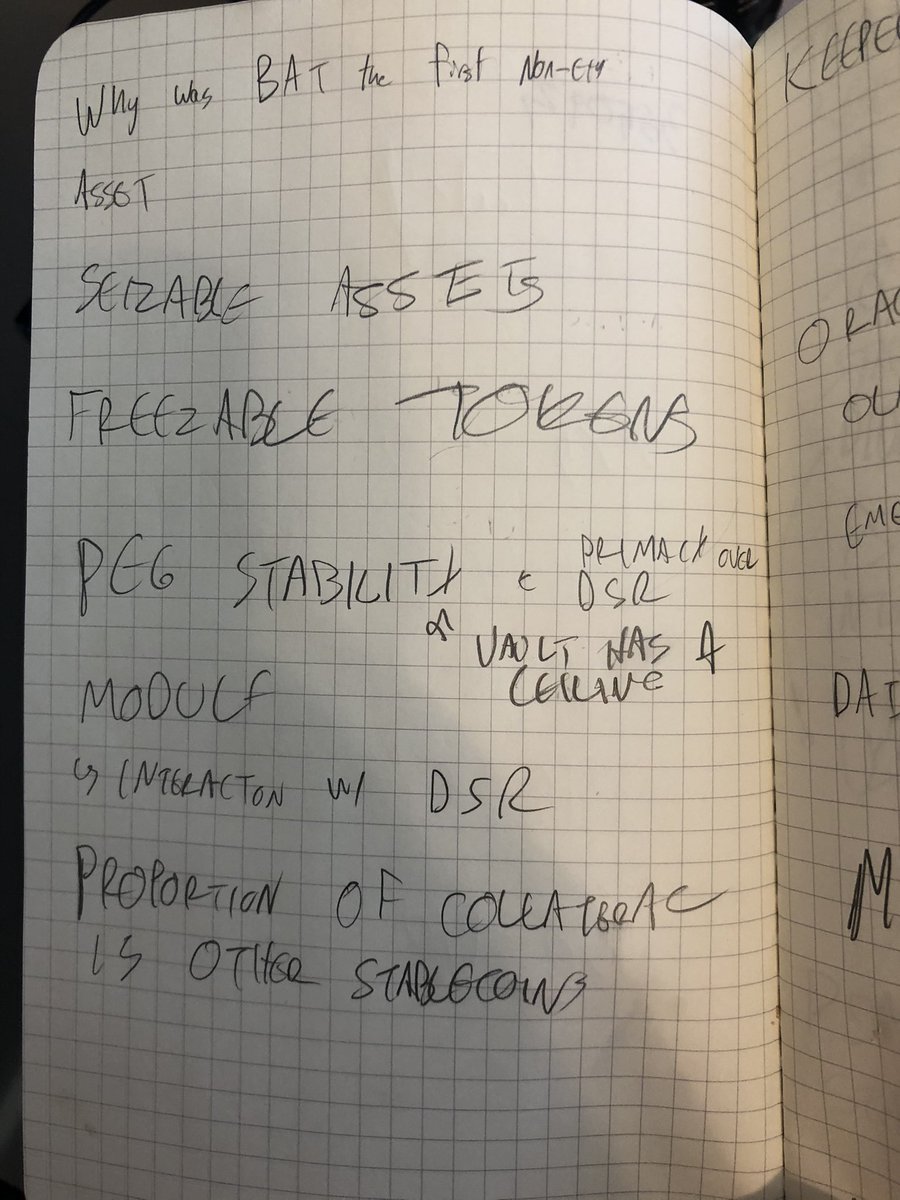 Why was BAT the first Non-ETH
ASSET
SEIZABLE ASSETS
FREEZABLE TOKENS
PEG STABILITY
PRIMACY OVER
DSR
VAULT HAS A
CEILING
MODULE
↳ INTERACTON W/ DSR
PROPORTION OF COLLATERAL
IS OTHER STABLECOINS
KEEPE
ORAC
OU
EME
DAI
M